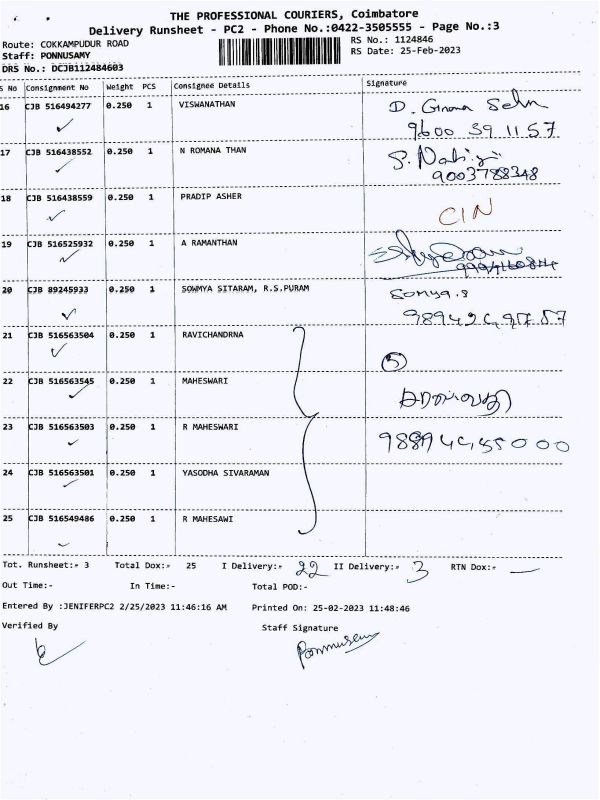 THE PROFESSIONAL COURIERS, Coimbatore
Delivery Runsheet - PC2 - Phone No.:0422-3505555 - Page No.:3
Route: COKKAMPUDUR ROAD
Staff: PONNUSAMY
DRS No.: DCJB112484603
RS No.: 1124846
RS Date: 25-Feb-2023
S No Consignment No Weight PCS Consignee Details Signature
16 CJB 516494277 0.250 1 VISWANATHAN D.
9600 39 1157
17 CJB 516438552 0.250 1 N ROMANA THAN
9003788348
18 CJB 516438559 0.250 1 PRADIP ASHER CIN
19 CJB 516525932 0.250 1 A RAMANTHAN
20 CJB 89245933 0.250 1 SOWMYA SITARAM, R.S.PURAM Somya.s
21 CJB 516563504 0.250 1 RAVICHANDRNA 5
22 CJB 516563545 0.250 1 MAHESWARI
23 CJB 516563503 0.250 1 R MAHESWARI
24 CJB 516563501 0.250 1 YASODHA SIVARAMAN
25 CJB 516549486 0.250 1 R MAHESAWI
Tot. Runsheet:- 3 Total Dox:- 25 I Delivery:- 22 II Delivery:- 3 RTN Dox:- —
Out Time:- In Time:- Total POD:-
Entered By :JENIFERPC2 2/25/2023 11:46:16 AM Printed On: 25-02-2023 11:48:46
Verified By Staff Signature
Ponnusamy